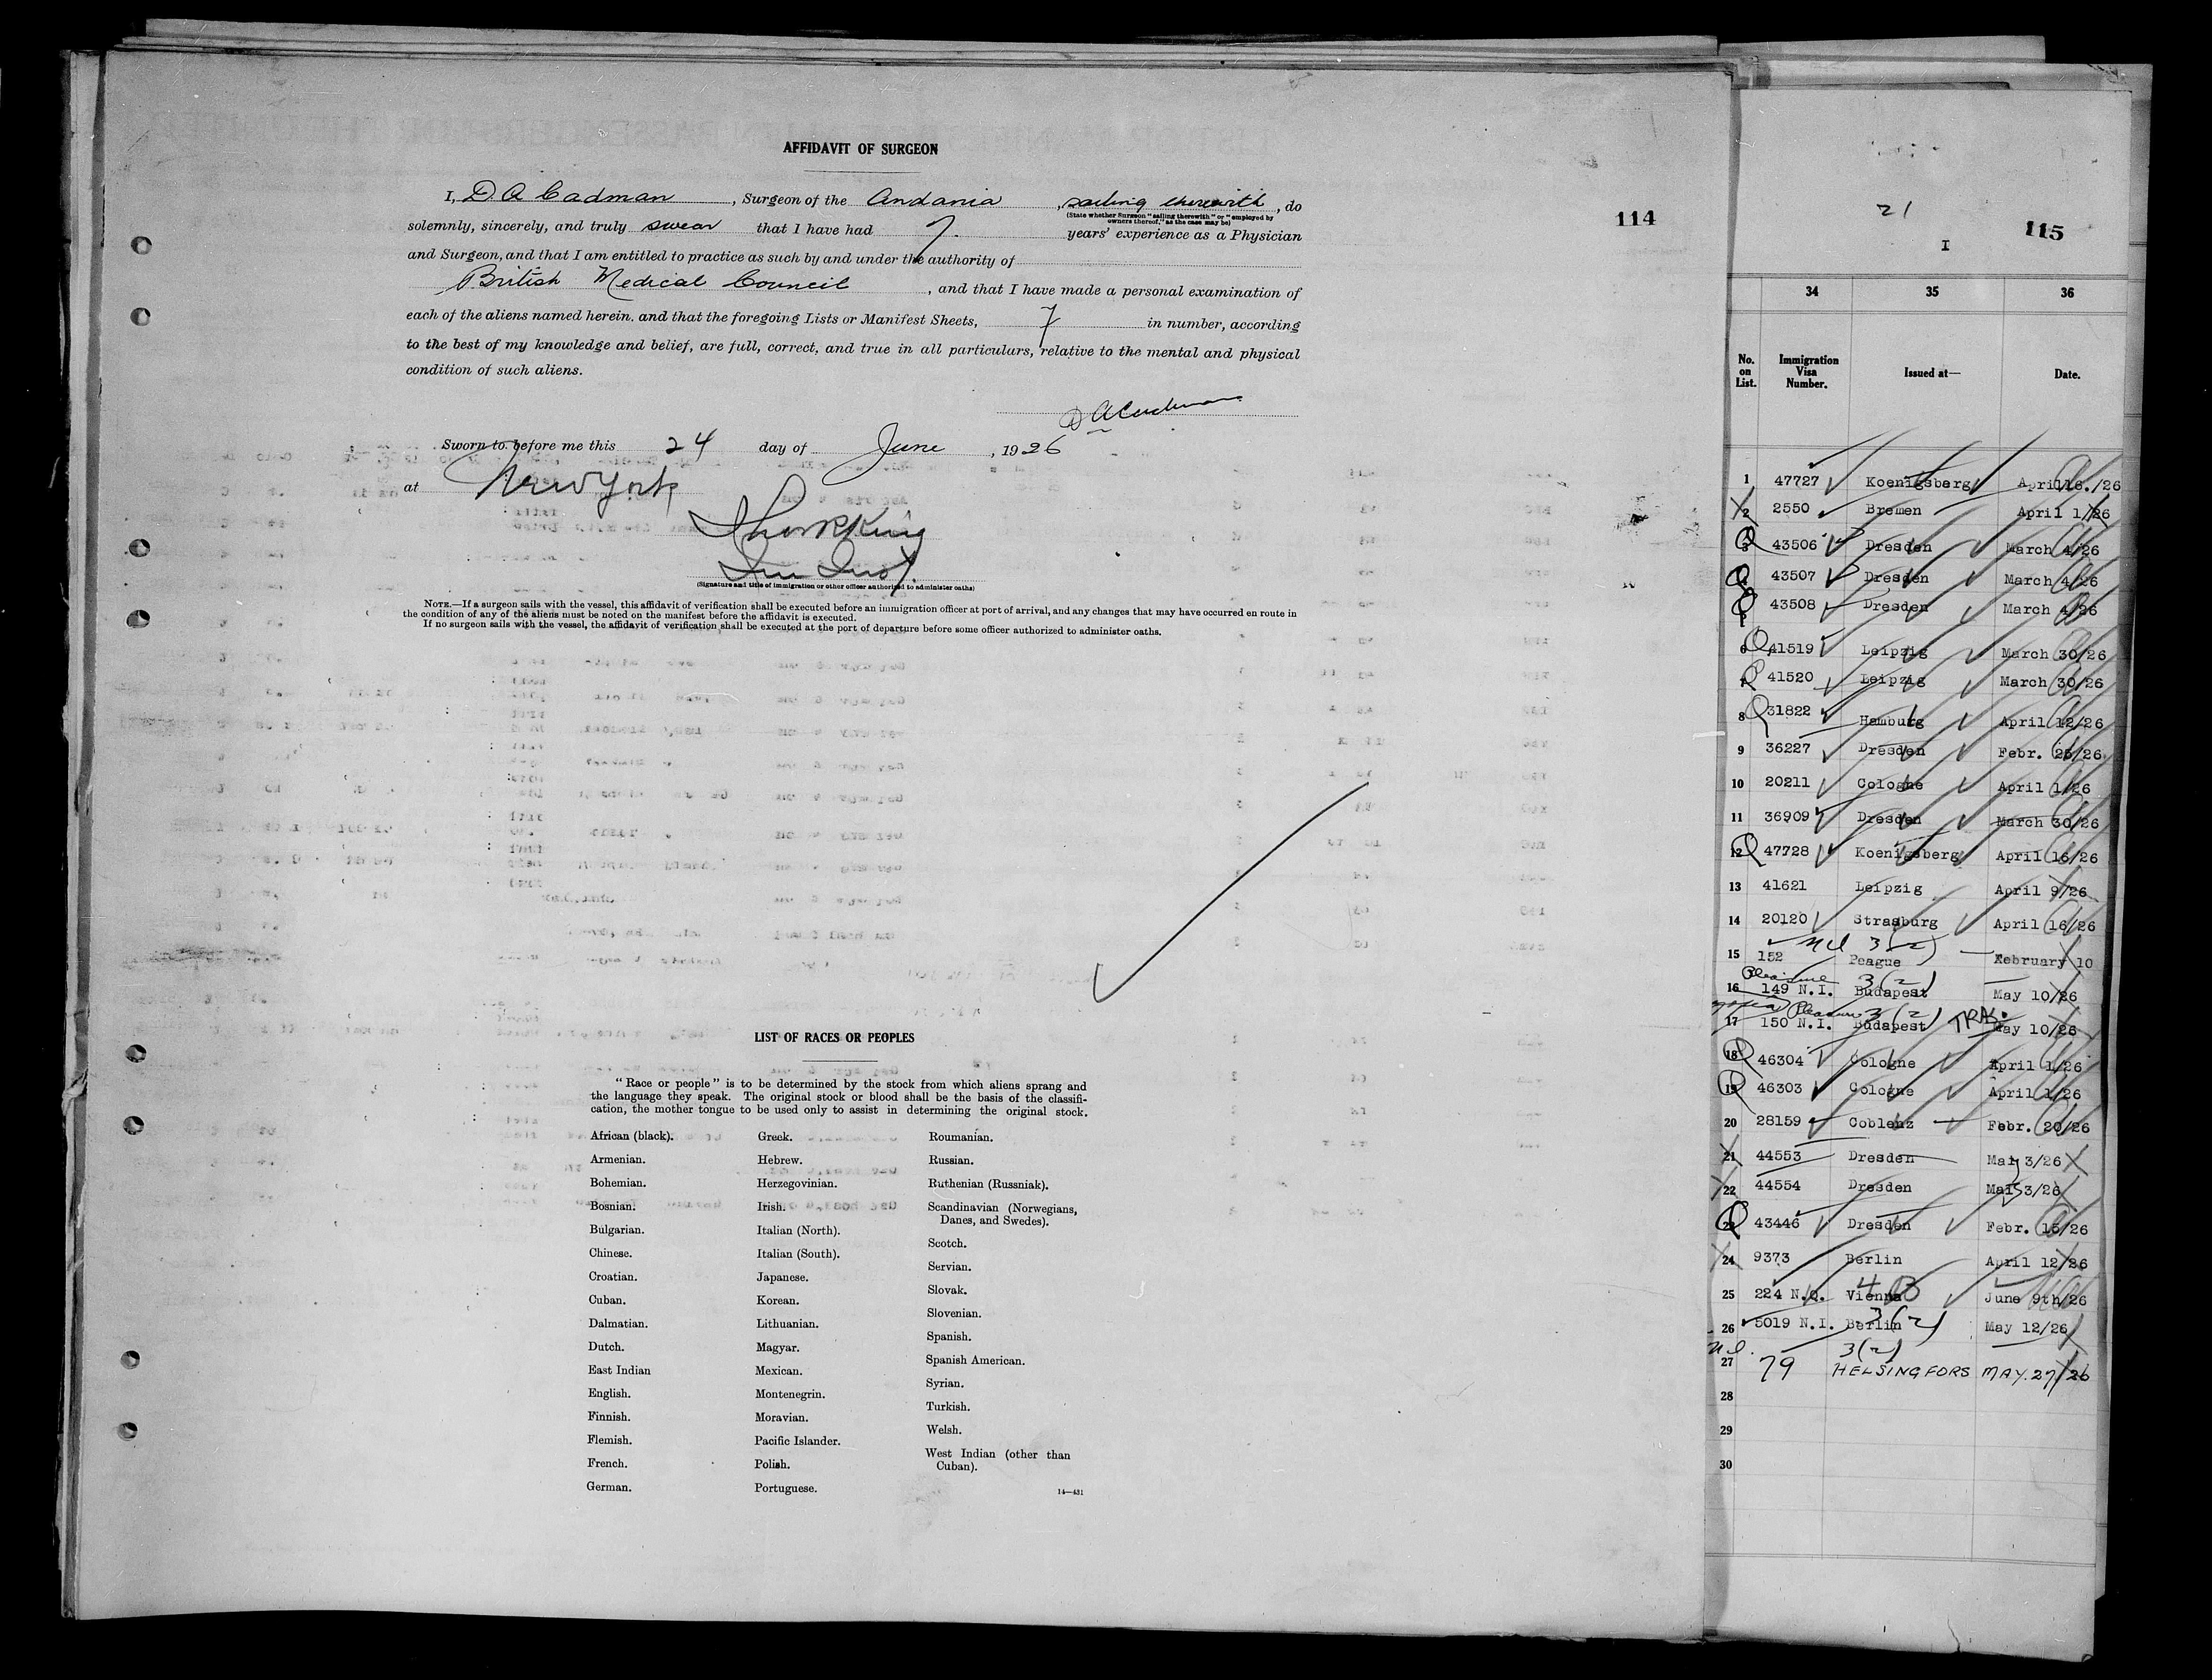 AFFIDAVIT OF SURGEON
I, D. A Cadman, Surgeon of the Andania, sailing therewith, do
(State whether Surgeon "sailing therewith" or "employed by
owners thereof," as the case may be)
solemnly, sincerely, and truly swear that I have had 7. years' experience as a Physician
and Surgeon, and that I am entitled to practice as such by and under the authority of
British Medical Council, and that I have made a personal examination of
each of the aliens named herein. and that the foregoing Lists or Manifest Sheets, 7 in number, according
to the best of my knowledge and belief, are full, correct, and true in all particulars, relative to the mental and physical
condition of such aliens.
D A Cadman
Sworn to before me this 24 day of June, 1926
at New York
(Signature and title of immigration or other officer authorized to administer oaths)
NOTE.—If a surgeon sails with the vessel, this affidavit of verification shall be executed before an immigration officer at port of arrival, and any changes that may have occurred en route in
the condition of any of the aliens must be noted on the manifest before the affidavit is executed.
If no surgeon sails with the vessel, the affidavit of verification shall be executed at the port of departure before some officer authorized to administer oaths.
114
LIST OF RACES OR PEOPLES
"Race or people" is to be determined by the stock from which aliens sprang and
the language they speak. The original stock or blood shall be the basis of the classifi-
cation, the mother tongue to be used only to assist in determining the original stock.
African (black).
Armenian.
Bohemian.
Bosnian.
Bulgarian.
Chinese.
Croatian.
Cuban.
Dalmatian.
Dutch.
East Indian
English.
Finnish.
Flemish.
French.
German.
Greek.
Hebrew.
Herzegovinian.
Irish.
Italian (North).
Italian (South).
Japanese.
Korean.
Lithuanian.
Magyar.
Mexican.
Montenegrin.
Moravian.
Pacific Islander.
Polish.
Portuguese.
Roumanian.
Russian.
Ruthenian (Russniak).
Scandinavian (Norwegians,
Danes, and Swedes).
Scotch.
Servian.
Slovak.
Slovenian.
Spanish.
Spanish American.
Syrian.
Turkish.
Welsh.
West Indian (other than
Cuban).
14—431
21
I
115
34 35 36
No. on List. Immigration Visa Number. Issued at— Date.
1 47727 Koenigsberg April 16./26
2 2550 Bremen April 1/26
3 43506 Dresden March 4/26
4 43507 Dresden March 4/26
43508 Dresden March 4/26
6 41519 Leipzig March 30/26
7 41520 Leipzig March 30/26
8 31822 Hamburg April 12/26
9 36227 Dresden Febr. 25/26
10 20211 Cologne April 1/26
11 36909 Dresden March 30/26
12 47728 Koenigsberg April 16/26
13 41621 Leipzig April 9/26
14 20120 Strasburg April 16/26
3(2)
15 152 Peague February 10
Pleasure 3(2)
16 149 N.I. Budapest May 10/26
Pleasure 3(2)
17 150 N.I. Budapest May 10/26
18 46304 Cologne April 1/26
19 46303 Cologne April 1/26
20 28159 Coblenz Febr. 20/26
21 44553 Dresden Mai 3/26
22 44554 Dresden Mai 3/26
23 43446 Dresden Febr. 15/26
24 9373 Berlin April 12/26
4 B
25 224 N.Q. Vienna June 9th/26
3(2)
26 5019 N.I. Berlin May 12/26
3(2)
27 79 HELSINGFORS MAY. 27/26
28
29
30